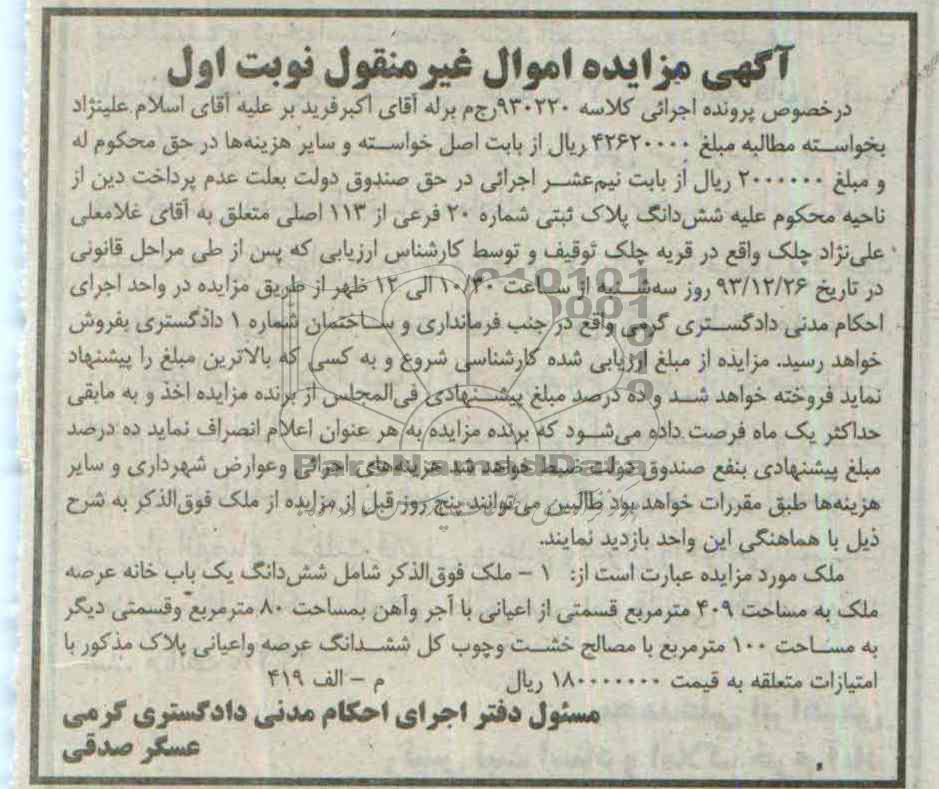 آگهی مزایده اموال غیرمنقول نوبت اول
درخصوص پرونده اجرائی کلاسه ۹۳۰۲۲۰رج‌م برله آقای اکبرفرید بر علیه آقای اسلام علینژاد
بخواسته مطالبه مبلغ ۴۲۶۲۰۰۰۰ ریال از بابت اصل خواسته و سایر هزینه‌ها در حق محکوم له
و مبلغ ۲۰۰۰۰۰۰ ریال از بابت نیم‌عشر اجرائی در حق صندوق دولت بعلت عدم پرداخت دین از
ناحیه محکوم علیه شش‌دانگ پلاک ثبتی شماره ۲۰ فرعی از ۱۱۳ اصلی متعلق به آقای غلامعلی
علی‌نژاد چلک واقع در قریه چلک توقیف و توسط کارشناس ارزیابی که پس از طی مراحل قانونی
در تاریخ ۹۳/۱۲/۲۶ روز سه‌شنبه از ساعت ۱۰/۳۰ الی ۱۲ ظهر از طریق مزایده در واحد اجرای
احکام مدنی دادگستری گرمی واقع در جنب فرمانداری و ساختمان شماره ۱ دادگستری بفروش
خواهد رسید. مزایده از مبلغ ارزیابی شده کارشناسی شروع و به کسی که بالاترین مبلغ را پیشنهاد
نماید فروخته خواهد شد و ده درصد مبلغ پیشنهادی فی‌المجلس از برنده مزایده اخذ و به مابقی
حداکثر یک ماه فرصت داده می‌شود که برنده مزایده به هر عنوان اعلام انصراف نماید ده درصد
مبلغ پیشنهادی بنفع صندوق دولت ضبط خواهد شد هزینه‌های اجرائی وعوارض شهرداری و سایر
هزینه‌ها طبق مقررات خواهد بود طالبین می‌توانند پنج روز قبل از مزایده از ملک فوق‌الذکر به شرح
ذیل با هماهنگی این واحد بازدید نمایند.
ملک مورد مزایده عبارت است از: ۱ - ملک فوق‌الذکر شامل شش‌دانگ یک باب خانه عرصه
ملک به مساحت ۴۰۹ مترمربع قسمتی از اعیانی با آجر وآهن بمساحت ۸۰ مترمربع وقسمتی دیگر
به مساحت ۱۰۰ مترمربع با مصالح خشت وچوب کل ششدانگ عرصه واعیانی پلاک مذکور با
امتیازات متعلقه به قیمت ۱۸۰۰۰۰۰۰۰ ریال م - الف ۴۱۹
مسئول دفتر اجرای احکام مدنی دادگستری گرمی
عسگر صدقی
ParsNamadData